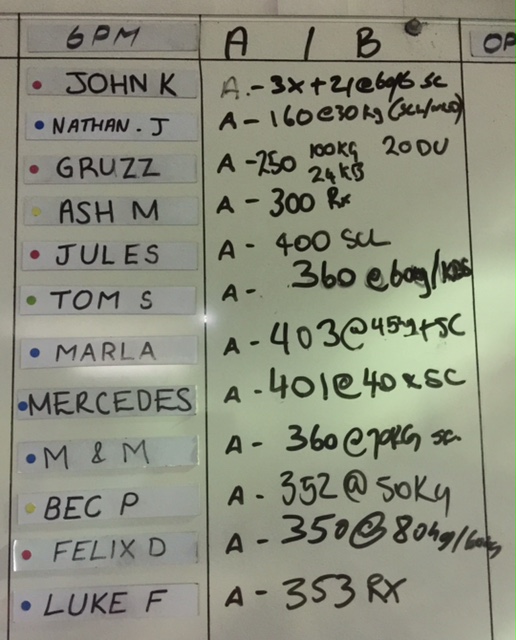 6PM A / B OP
JOHN K A - 3X + 21@ SC
NATHAN. J A - 160@30kg
GRUZZ A - 250 100KG 24KB 200U
ASH M A - 300 Rx
JULES A - 400 SCL
TOM S A - 360 @60kg/
MARLA A - 403@45 + SC
MERCEDES A - 401@40 SC
M & M A - 360@70KG SC
BEC P A - 352@50Kg
FELIX D A - 350@80kg/
LUKE F A - 353 RX